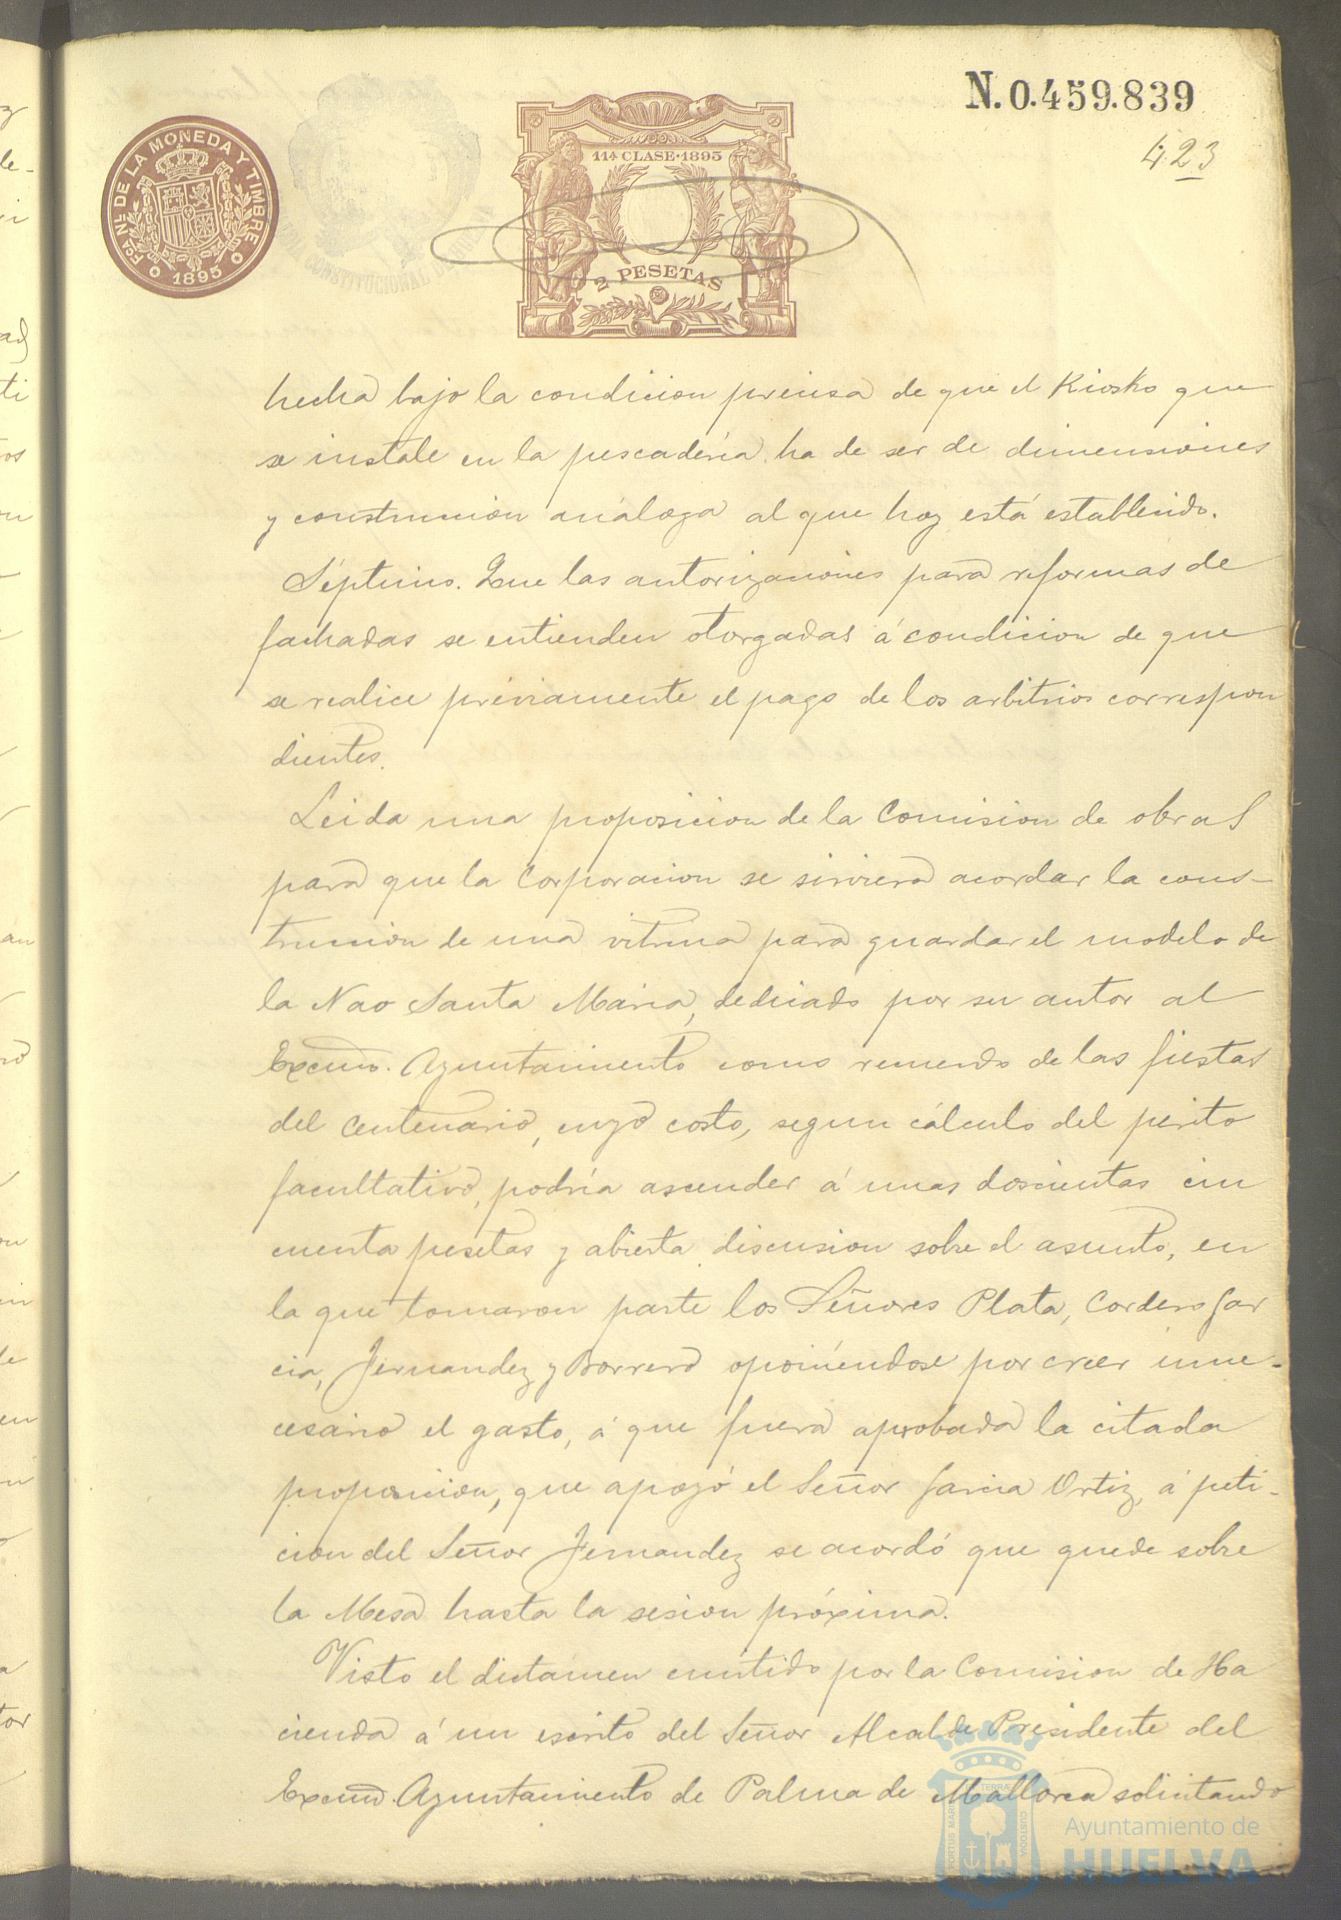 N.0.459.839
423
Fca. Nl. DE LA MONEDA Y TIMBRE
1895
11ª CLASE·1895
2 PESETAS
CONSTITUCIONAL
hecha bajo la condicion precisa de que el Kiosko que
se instale en la pescadería ha de ser de dimensiones
y construccion análoga al que hoy está establecido.
Séptimo. Que las autorizaciones para reformas de
fachadas se entienden otorgadas á condicion de que
se realice préviamente el pago de los arbitrios correspon
dientes.
Leida una proposicion de la Comision de obras
para que la Corporacion se sirviera acordar la cons-
truccion de una vitrina para guardar el modelo de
la Nao Santa Maria, dedicado por su autor al
Excmo. Ayuntamiento como recuerdo de las fiestas
del Centenario, cuyo costo, segun cálculo del perito
facultativo, podría ascender á unas doscientas cin
cuenta pesetas y abierta discusion sobre el asunto, en
la que tomaron parte los Señores Plata, Cordero Gar
cia, Fernandez y Borrero oponiéndose por creer inne-
cesario el gasto, á que fuera aprobada la citada
proposicion, que apoyó el Señor Garcia Ortiz, á peti-
cion del Señor Fernandez se acordó que quede sobre
la Mesa hasta la sesion próxima.
Visto el dictámen emitido por la Comision de Ha
cienda á un escrito del Señor Alcalde Presidente del
Excmo. Ayuntamiento de Palma de Mallorca solicitando
PORTUS MARIS ET TERRAE CUSTODIA
Ayuntamiento de
HUELVA